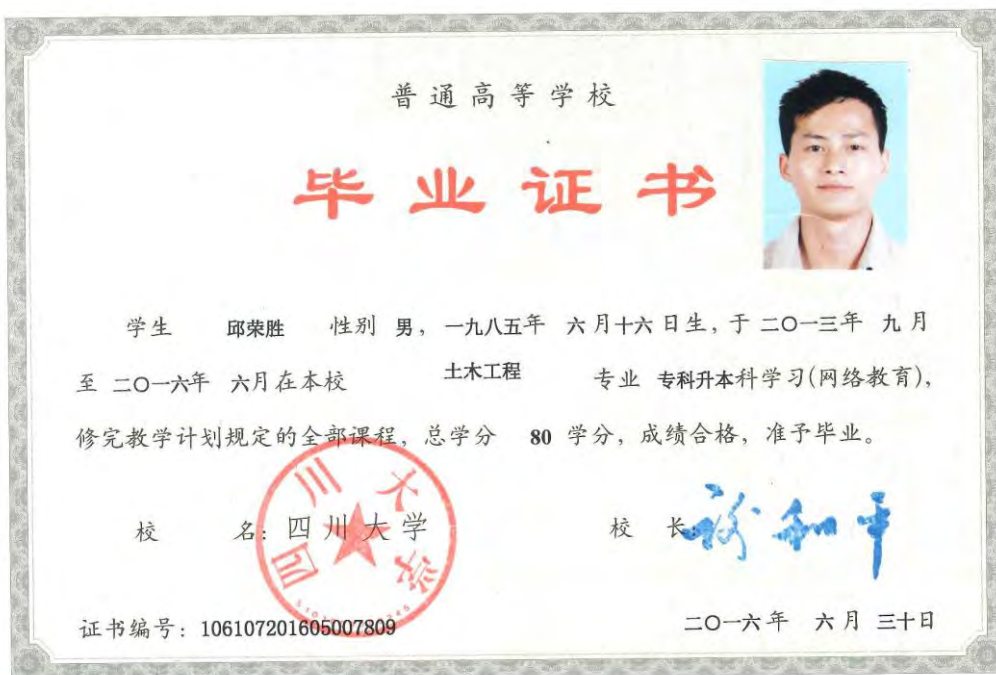 普通高等学校
毕业证书
学生 邱荣胜 性别 男，一九八五年 六月十六日生，于二〇一三年 九月
至 二〇一六年 六月在本校 土木工程 专业 专科升本科学习(网络教育)，
修完教学计划规定的全部课程，总学分 80 学分，成绩合格，准予毕业。
校 名：四川大学
四川大学
校 长：谢和平
证书编号：106107201605007809
二〇一六年 六月 三十日